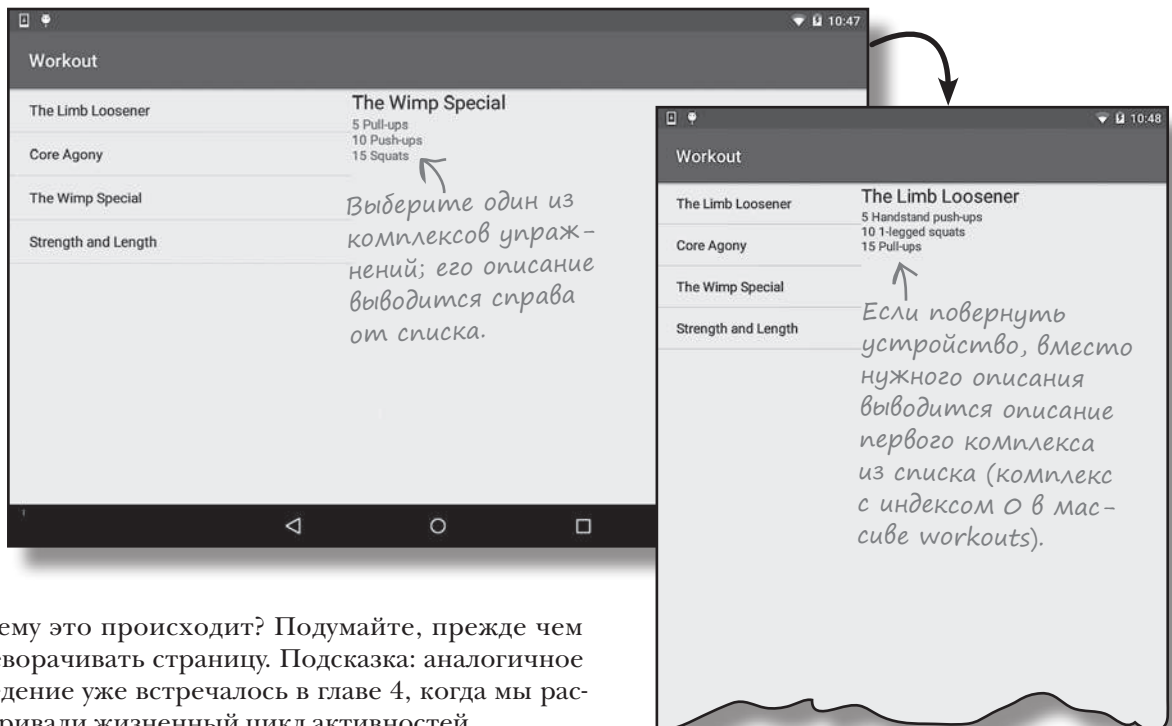 10:47
Workout
The Limb Loosener
Core Agony
The Wimp Special
Strength and Length
The Wimp Special
5 Pull-ups
10 Push-ups
15 Squats
Выберите один из
комплексов упраж-
нений; его описание
выводится справа
от списка.
10:48
Workout
The Limb Loosener
Core Agony
The Wimp Special
Strength and Length
The Limb Loosener
5 Handstand push-ups
10 1-legged squats
15 Pull-ups
Если повернуть
устройство, вместо
нужного описания
выводится описание
первого комплекса
из списка (комплекс
с индексом 0 в мас-
сиве workouts).
ему это происходит? Подумайте, прежде чем
еворачивать страницу. Подсказка: аналогичное
едение уже встречалось в главе 4, когда мы рас-
ривали жизненный цикл активностей.